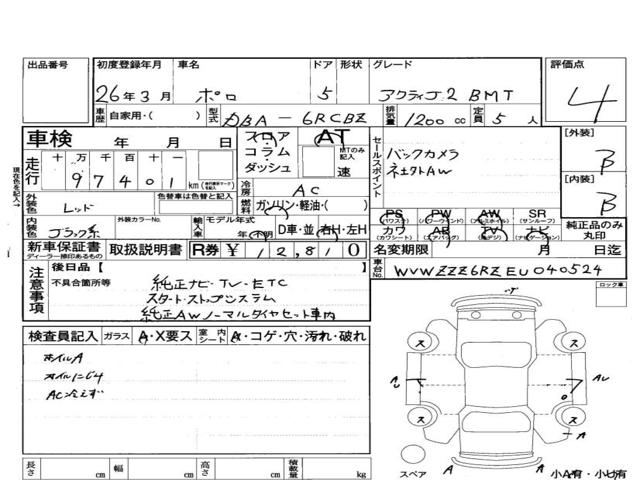 出品番号 初度登録年月 車名 ドア 形状 グレード 評価点
26年3月 ポロ 5 アクティブ2 BMT 4
車歴 自家用・( ) 型式 DBA-6RCBZ 排気量 1200 cc 定員 5 人
車検 年 月 日 フロア AT セールスポイント [外装]
コラム MTのみ記入 バックカメラ B
走行 十 万 千 百 十 一 ダッシュ 速 社外AW
97401 km 冷房 AC [内装]
外装色 レッド 色替車は色替と記入 燃料 ガソリン・軽油・( ) B
PS PW AW SR
(パワステ) (パワーウインド) (アルミホイル) (サンルーフ)
内装色 ブラック系 外装カラーNo. 輸入車 モデル年式 カワ AB TV ナビ 純正品のみ丸印
(カワシート) (エアバッグ) (地デジ) (ナビゲーション)
年・不明 D車・並 右H・左H
新車保証書 取扱説明書 R券 ¥ 12,810 名変期限 月 日迄
ディーラー捺印あるもの
後日品【 】 車台No. WVWZZZ6RZEU040524
注意事項 不具合箇所等 純正ナビ・TV・ETC ロック車
スタートストップシステム
純正AWノーマルタイヤセット車内
検査員記入 ガラス A・X要ス 室内シート A・コゲ・穴・汚れ・破れ
ホイルA
オイルにじみ
AC冷えず
ス ス
ス ス
A
スペア A A 小A有・小U有
長さ cm 幅 cm 高さ cm 積載量 kg
現在色を記入